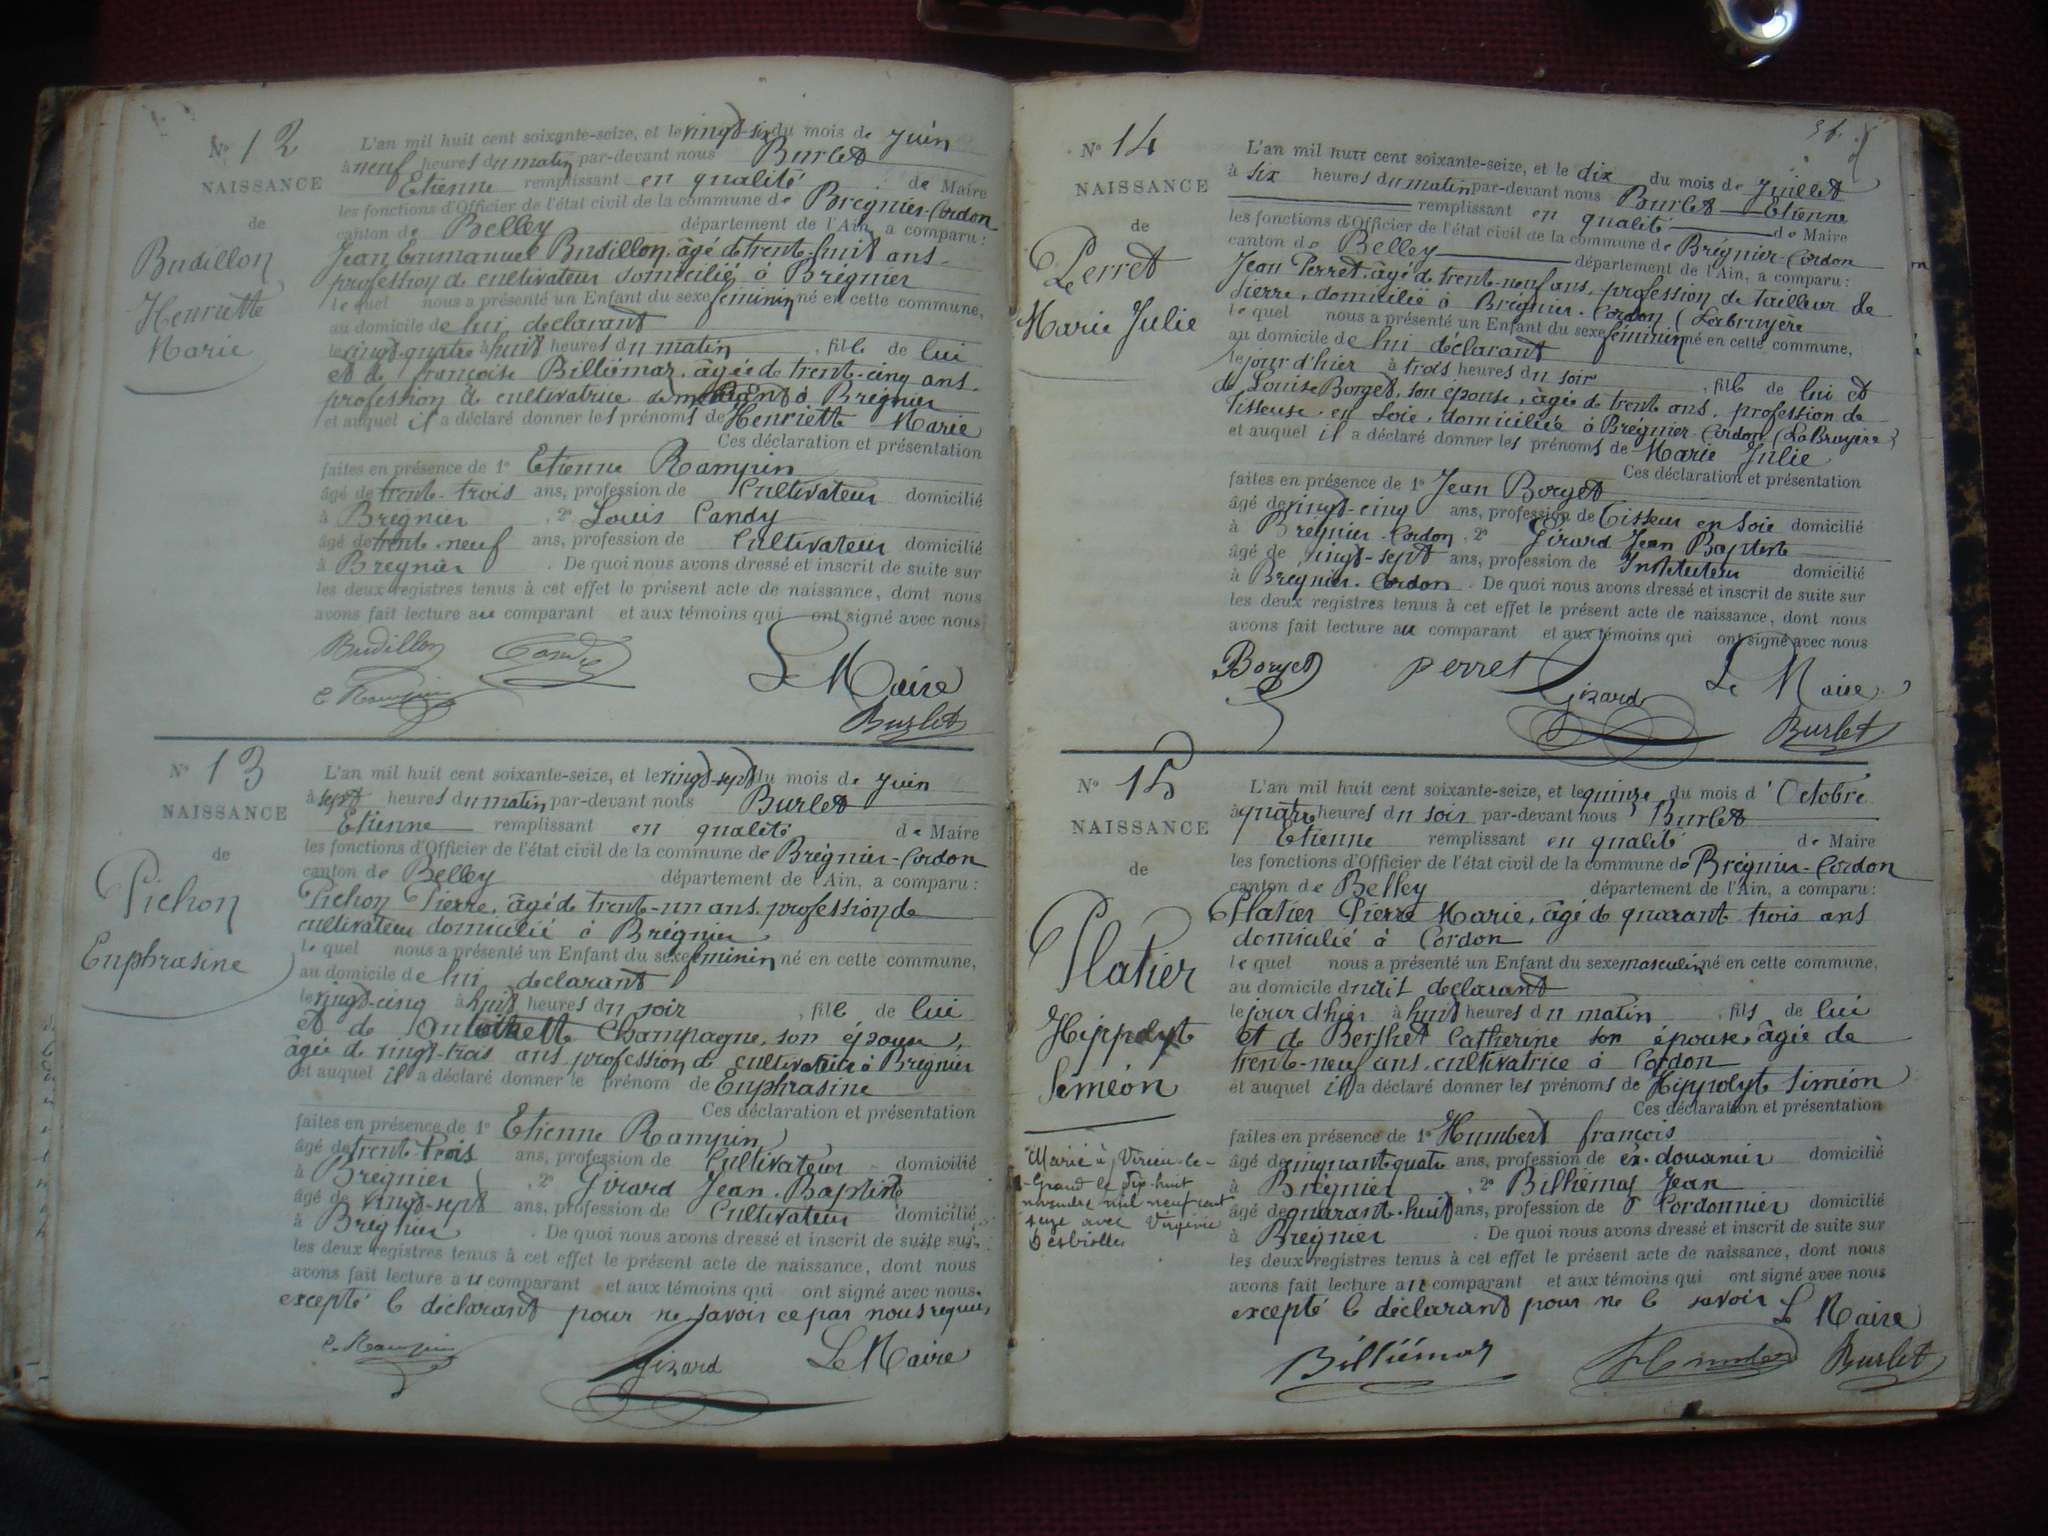 No 12
NAISSANCE
de
Budillon
Henriette
Marie
L'an mil huit cent soixante-seize, et le vingt-six du mois de juin
à neuf heures du matin par-devant nous Burlet
Etienne remplissant en qualité de Maire
les fonctions d'Officier de l'état civil de la commune de Brégnier-Cordon
canton de Belley département de l'Ain, a comparu :
Jean Emmanuel Budillon, âgé de trente-huit ans
profession de cultivateur domicilié à Brégnier
lequel nous a présenté un Enfant du sexe féminin né en cette commune,
au domicile de lui déclarant
le vingt-quatre à huit heures du matin , fille de lui
et de françoise Billiémaz, âgée de trente-cinq ans
profession de cultivatrice demeurant à Brégnier
et auquel il a déclaré donner les prénoms de Henriette Marie
Ces déclaration et présentation
faites en présence de 1° Etienne Rampin
âgé de trente-trois ans, profession de Cultivateur domicilié
à Bregnier , 2° Louis Candy
âgé de trente-neuf ans, profession de Cultivateur domicilié
à Bregnier . De quoi nous avons dressé et inscrit de suite sur
les deux registres tenus à cet effet le présent acte de naissance, dont nous
avons fait lecture au comparant et aux témoins qui ont signé avec nous
Budillon Candy Le Maire
e Rampin Burlet
No 13
NAISSANCE
de
Pichon
Euphrasine
L'an mil huit cent soixante-seize, et le vingt-sept du mois de juin
à sept heures du matin par-devant nous Burlet
Etienne remplissant en qualité de Maire
les fonctions d'Officier de l'état civil de la commune de Brégnier-Cordon
canton de Belley département de l'Ain, a comparu :
Pichon Pierre, âgé de trente-un ans, profession de
cultivateur domicilié à Brégnier
lequel nous a présenté un Enfant du sexe féminin né en cette commune,
au domicile de lui déclarant
le vingt-cinq à huit heures du soir , fille de lui
et de Champagne, son épouse,
âgée de vingt-trois ans profession de cultivatrice à Brégnier
et auquel il a déclaré donner le prénom de Euphrasine
Ces déclaration et présentation
faites en présence de 1° Etienne Rampin
âgé de trente trois ans, profession de Cultivateur domicilié
à Brégnier , 2° Girard Jean-Baptiste
âgé de vingt-sept ans, profession de Cultivateur domicilié
à Bregnier . De quoi nous avons dressé et inscrit de suite sur
les deux registres tenus à cet effet le présent acte de naissance, dont nous
avons fait lecture au comparant et aux témoins qui ont signé avec nous
excepté le déclarant pour ne savoir ce par nous requis
e. Rampin Girard Le Maire
No 14
NAISSANCE
de
Perret
Marie Julie
L'an mil huit cent soixante-seize, et le dix du mois de Juillet
à six heures du matin par-devant nous Burlet Etienne
remplissant en qualité de Maire
les fonctions d'Officier de l'état civil de la commune de Brégnier-Cordon
canton de Belley département de l'Ain, a comparu :
Jean Perret, âgé de trente-neuf ans, profession de tailleur de
pierre, domicilié à Brégnier-Cordon (Labruyère
lequel nous a présenté un Enfant du sexe féminin né en cette commune,
au domicile de lui déclarant
le jour d'hier à trois heures du soir , fille de lui et
de Louise Borget, son épouse, âgée de trente ans, profession de
tisseuse en soie, domiciliée à Brégnier-Cordon (LaBruyère)
et auquel il a déclaré donner les prénoms de Marie Julie
Ces déclaration et présentation
faites en présence de 1° Jean Borget
âgé de vingt-cinq ans, profession de Tisseur en Soie domicilié
à Brégnier-Cordon , 2° Girard Jean Baptiste
âgé de vingt-sept ans, profession de Instituteur domicilié
à Brégnier-Cordon . De quoi nous avons dressé et inscrit de suite sur
les deux registres tenus à cet effet le présent acte de naissance, dont nous
avons fait lecture au comparant et aux témoins qui ont signé avec nous
Borget perret Girard Le Maire
Burlet
No 15
NAISSANCE
de
Platier
Hippolyte
Siméon
Marié à Virieu-le-
-Grand le dix-huit
novembre mil neuf cent
seize avec Virginie
L'an mil huit cent soixante-seize, et le quinze du mois d'Octobre
à quatre heures du soir par-devant nous Burlet
Etienne remplissant en qualité de Maire
les fonctions d'Officier de l'état civil de la commune de Brégnier-Cordon
canton de Belley département de l'Ain, a comparu :
Platier Pierre Marie, âgé de quarante trois ans
domicilié à Cordon
lequel nous a présenté un Enfant du sexe masculin né en cette commune,
au domicile dudit déclarant
le jour d'hier à huit heures du matin , fils de lui
et de Berthet Catherine son épouse, âgée de
trente-neuf ans, cultivatrice à Cordon
et auquel il a déclaré donner les prénoms de Hippolyte Siméon
Ces déclaration et présentation
faites en présence de 1° Humbert françois
âgé de cinquante quatre ans, profession de ex-douanier domicilié
à Brégnier , 2° Billiémaz Jean
âgé de quarante-huit ans, profession de Cordonnier domicilié
à Bregnier . De quoi nous avons dressé et inscrit de suite sur
les deux registres tenus à cet effet le présent acte de naissance, dont nous
avons fait lecture au comparant et aux témoins qui ont signé avec nous
excepté le déclarant pour ne le savoir Le Maire
Billiémaz Humbert Burlet